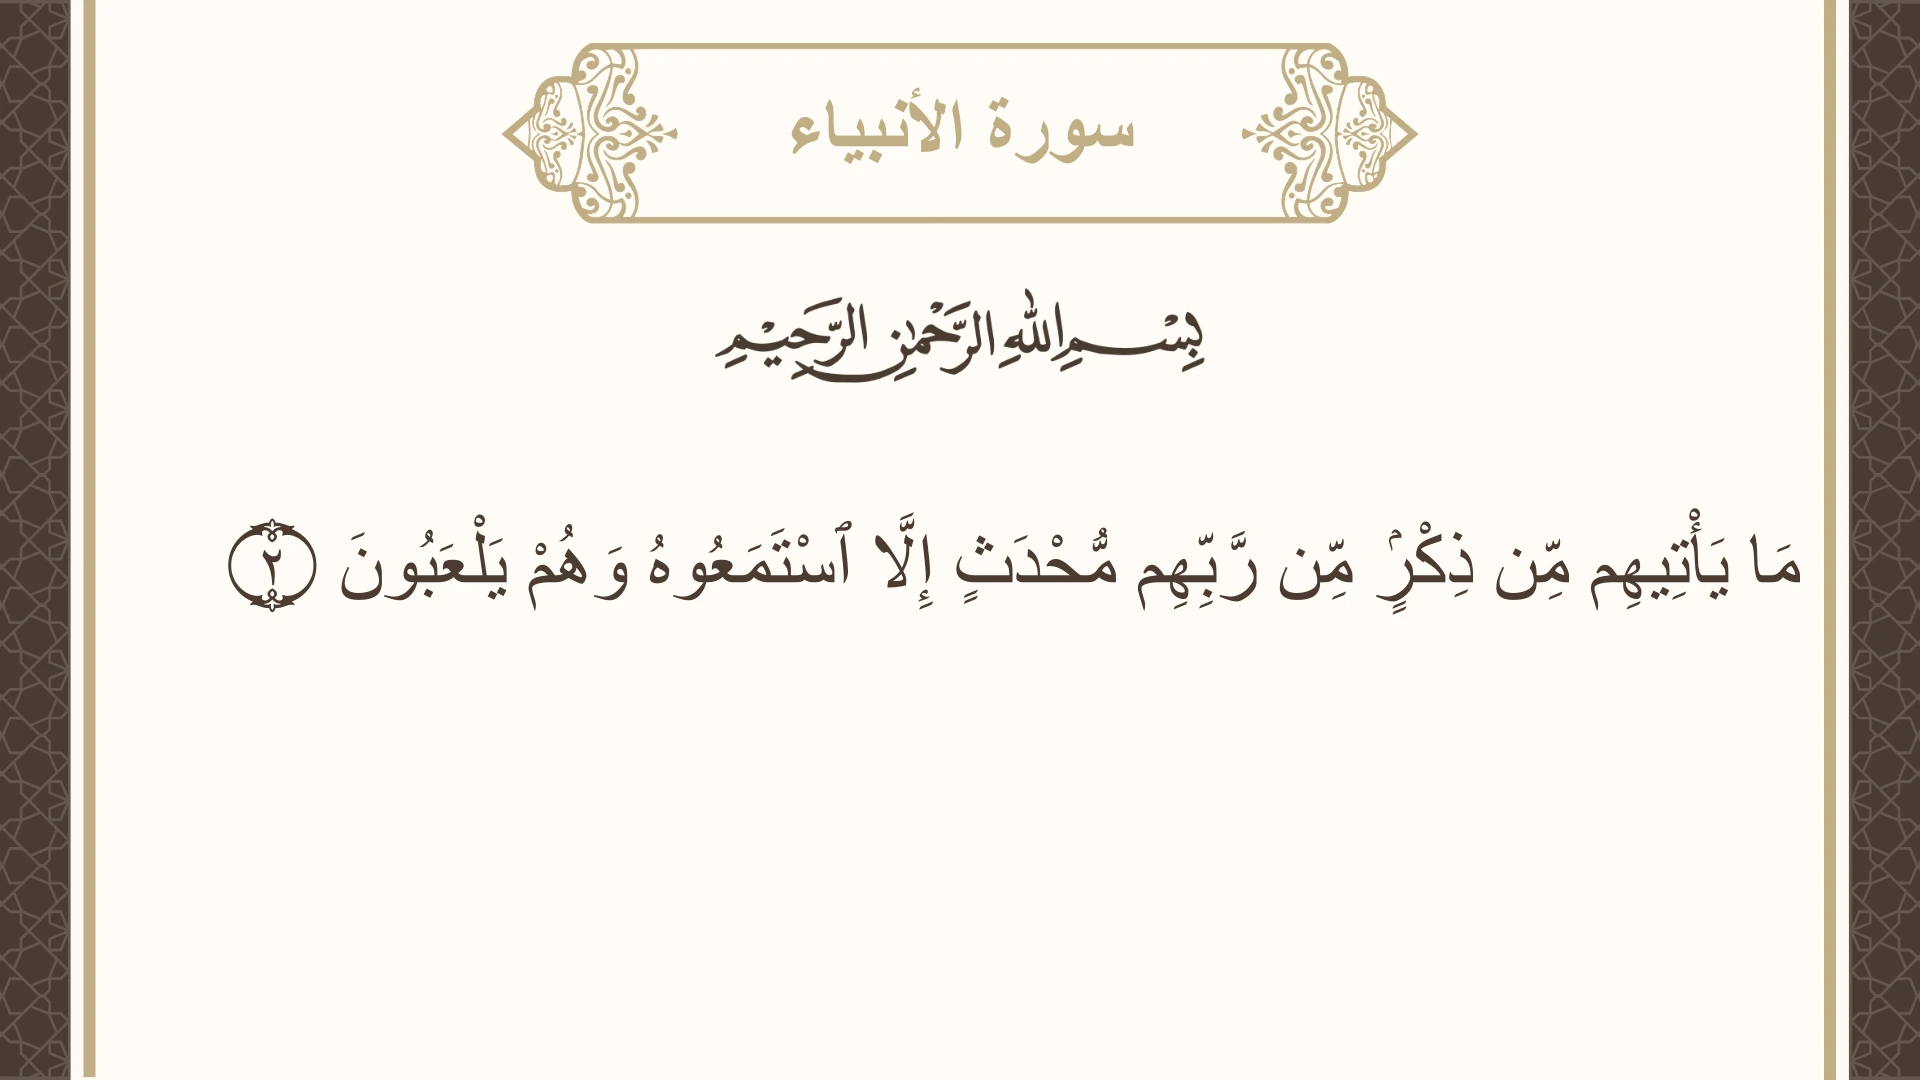 سورة الأنبياء
بِسْمِ اللهِ الرَّحْمٰنِ الرَّحِيْمِ
مَا يَأْتِيهِم مِّن ذِكْرٍۢ مِّن رَّبِّهِم مُّحْدَثٍ إِلَّا ٱسْتَمَعُوهُ وَهُمْ يَلْعَبُونَ ٢